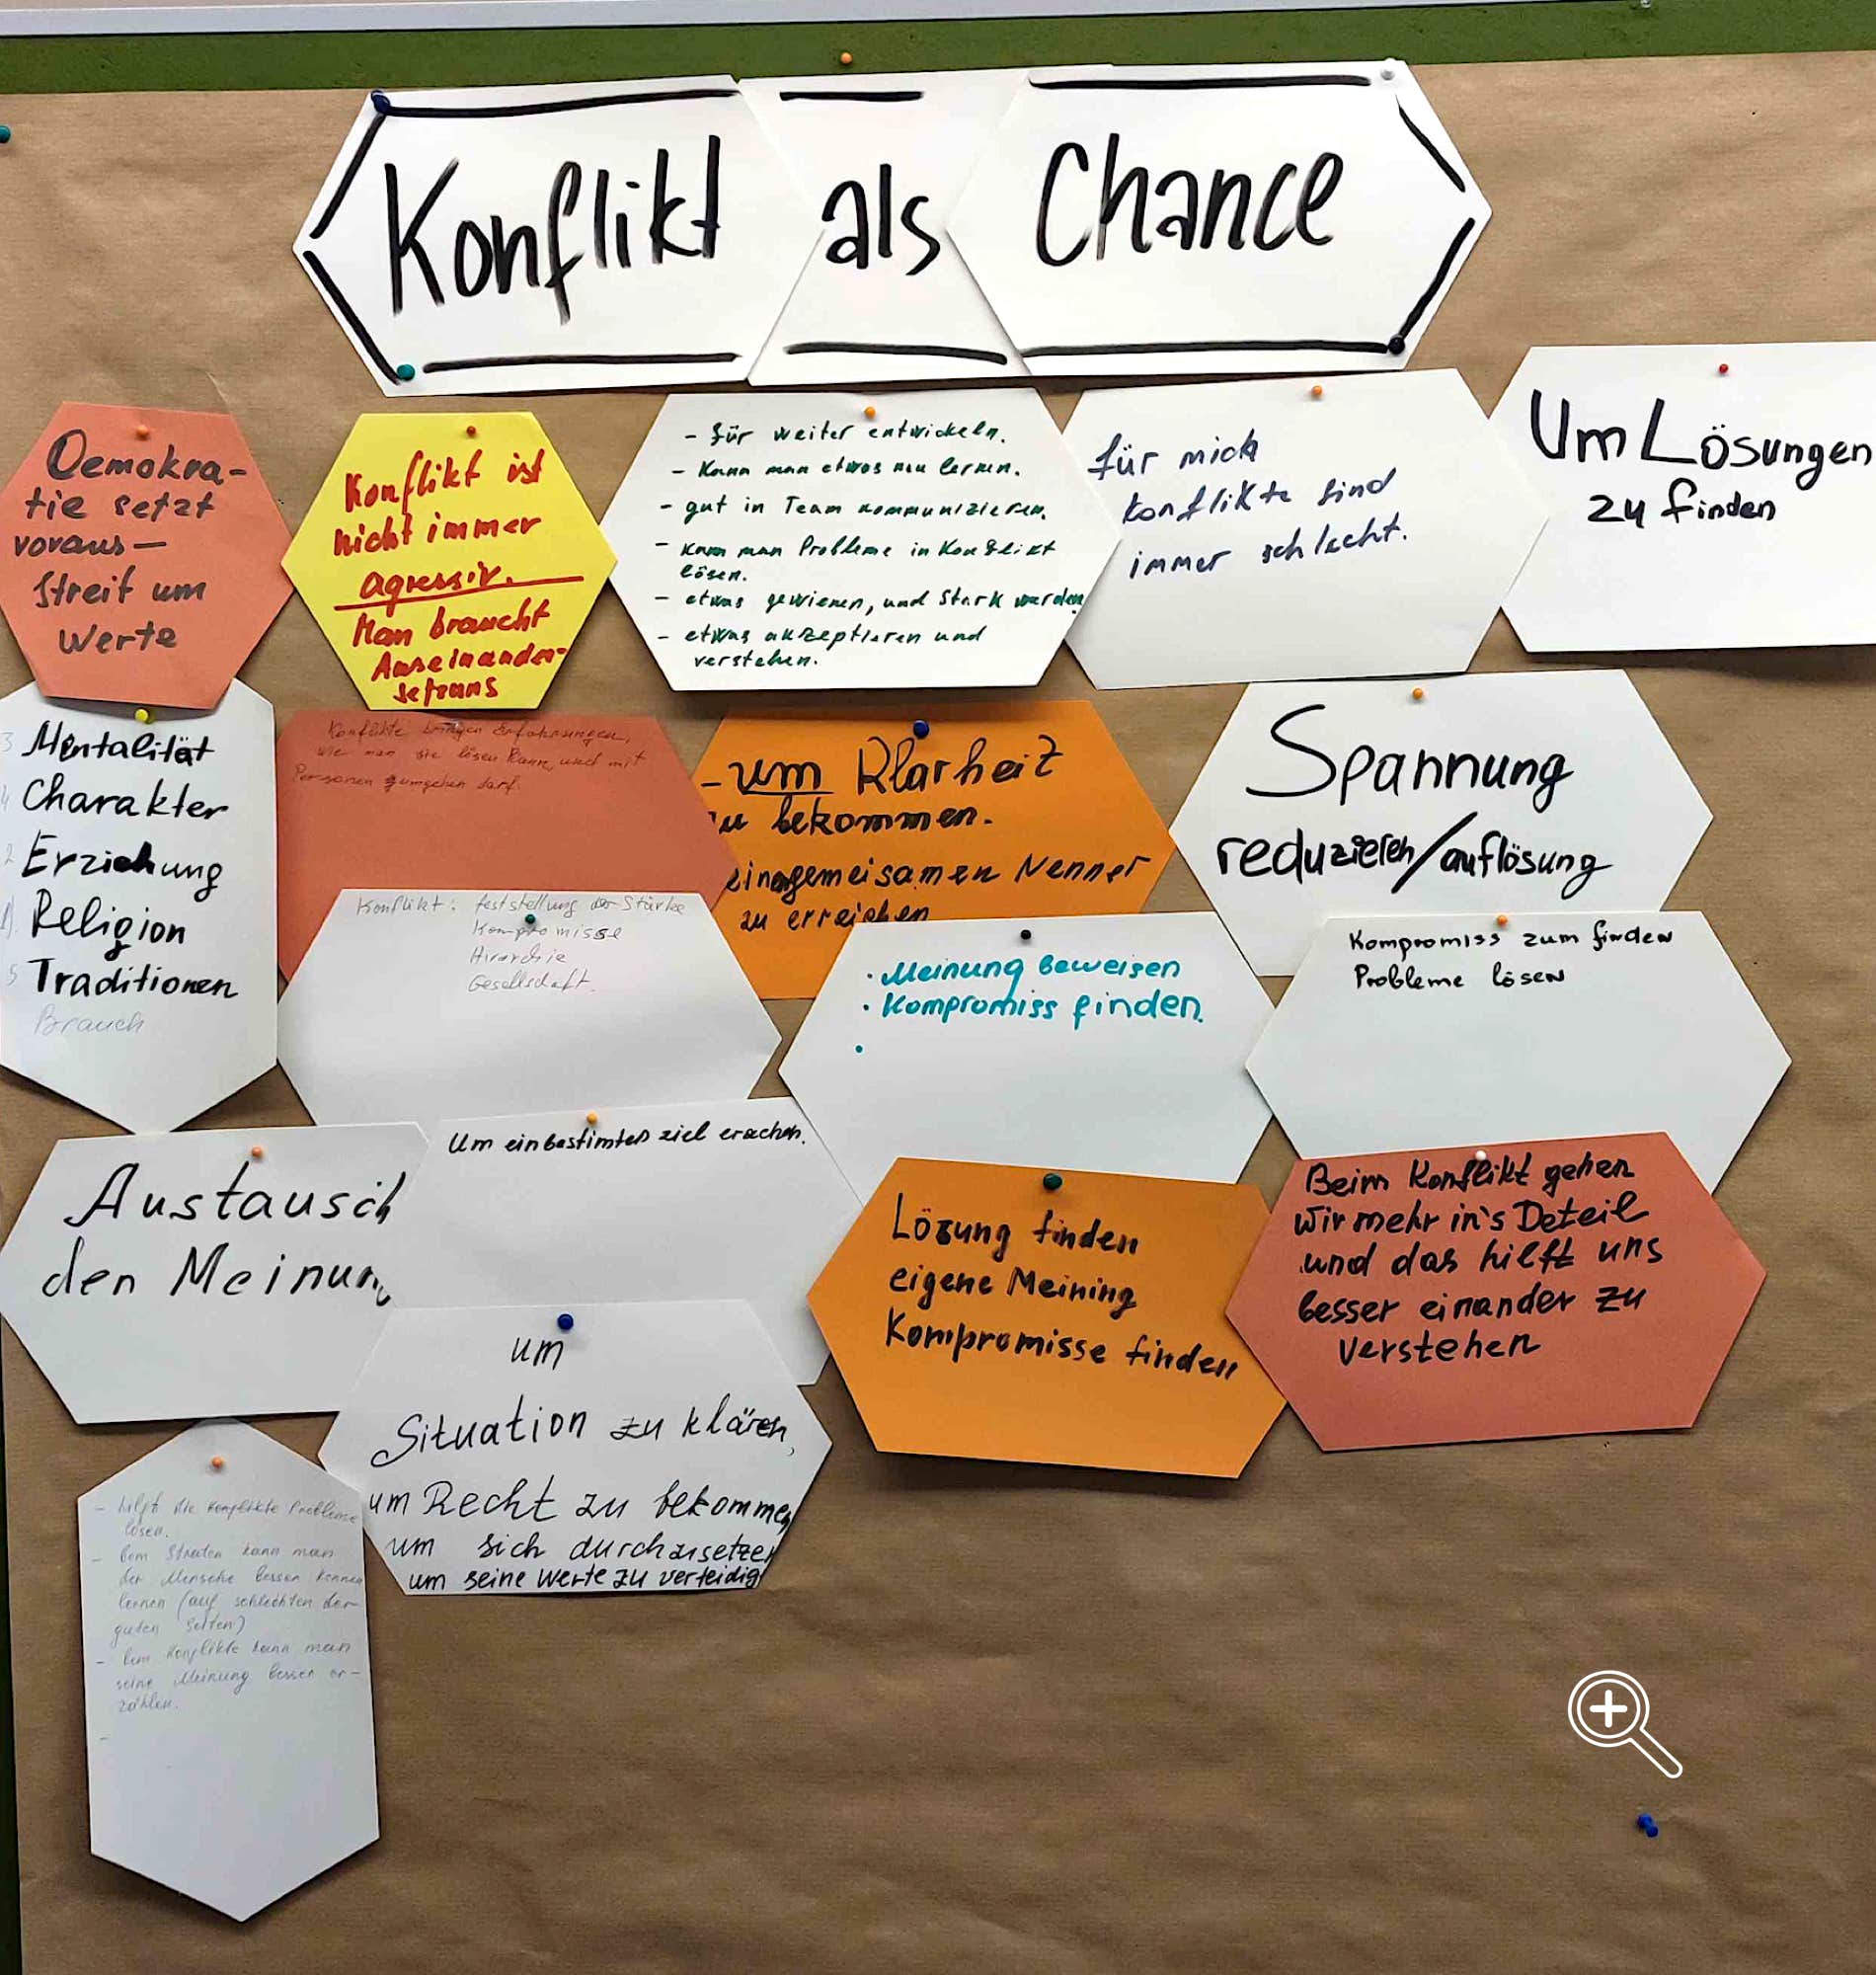 Konflikt als Chance
Demokra-
tie setzt
voraus—
Streit um
Werte
Konflikt ist
nicht immer
agressiv.
Man braucht
Auseinander-
setzuns
- für weiter entwickeln.
- Kann man etwas neu lernen.
- gut in Team kommunizieren.
- kann man Probleme in Konflikt
lösen.
- etwas gewienen, und Stark werden
- etwas akzeptieren und
verstehen.
für mich
konflikte sind
immer schlecht.
Um Lösungen
zu finden
3 Mentalität
4 Charakter
2 Erziehung
1). Religion
5 Traditionen
Brauch
Konflikte bringen Erfahrungen,
wie man sie lösen kann, und mit
Personen umgehen darf.
- um Klarheit
zu bekommen.
gemeisamen Nenner
zu erreichen
Spannung
reduzieren/auflösung
Konflikt: feststellung der Stärke
Kompromisse
Hirarchie
Gesellschaft.
· Meinung beweisen
· Kompromiss finden.
·
Kompromiss zum finden
Probleme lösen
Austausch
den Meinung
Um ein bestimtes ziel erachen.
Lösung finden
eigene Meining
Kompromisse finden
Beim Konflikt gehen
wir mehr in's Deteil
und das hilft uns
besser einander zu
verstehen
um
Situation zu klären,
um Recht zu bekommen
um sich durchzusetzen
um seine Werte zu verteidig
- hilft die Konflikte Probleme
lösen.
- bem Streiten kann man
der Mensche besser kennen
lernen (auf schlechten der
guten Seiten)
- bem Konflikte kann man
seine Meinung besser er-
zählen.
-